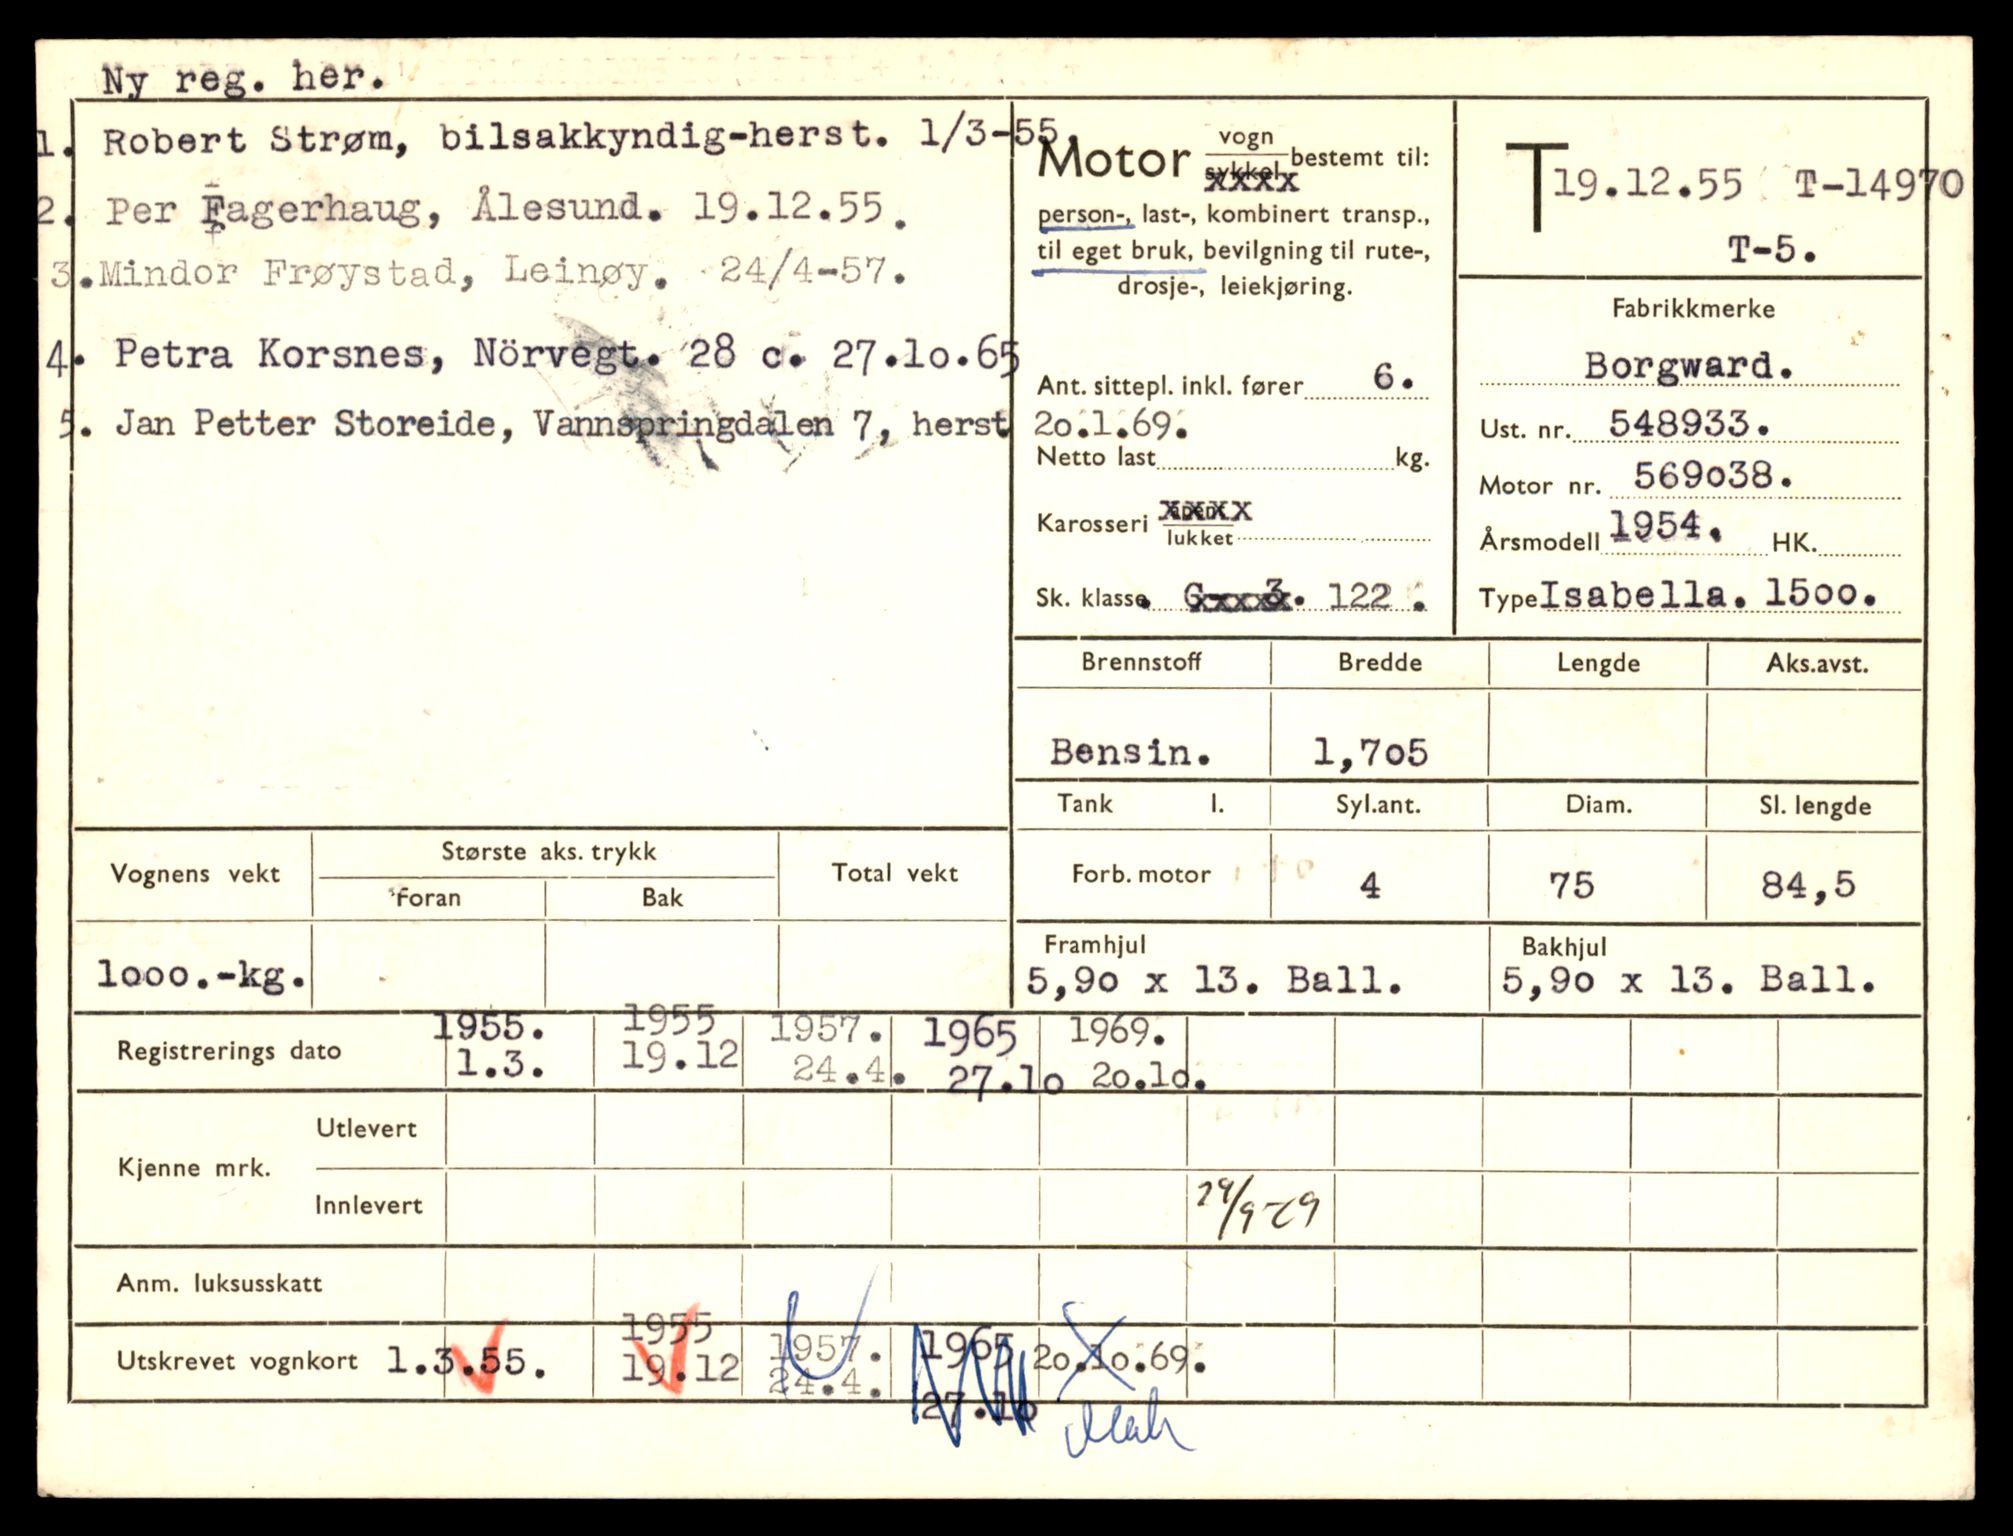 Ny reg. her.
1. Robert Strøm, bilsakkyndig-herst. 1/3-55.
2. Per Fagerhaug, Ålesund. 19.12.55.
3. Mindor Frøystad, Leinøy. 24/4-57.
4. Petra Korsnes, Nörvegt. 28 c. 27.lo.65
5. Jan Petter Storeide, Vannspringdalen 7, herst 2o.1.69.
Motor vogn
sykkel bestemt til:
xxxx
person-, last-, kombinert transp.,
til eget bruk, bevilgning til rute-,
drosje-, leiekjøring.
Ant. sittepl. inkl. fører 6.
Netto last kg.
Karosseri xxxx
lukket
Sk. klasse G 3. 122 .
T 19.12.55 T-14970
T-5.
Fabrikkmerke
Borgward.
Ust. nr. 548933.
Motor nr. 569o38.
Årsmodell 1954. HK.
Type Isabella. 15oo.
Brennstoff Bredde Lengde Aks.avst.
Bensin. 1,7o5
Tank l. Syl.ant. Diam. Sl. lengde
Forb. motor 4 75 84,5
Framhjul Bakhjul
5,9o x 13. Ball. 5,9o x 13. Ball.
Vognens vekt Største aks. trykk Total vekt
Foran Bak
looo.-kg.
Registrerings dato 1955. 1955 1957. 1965 1969.
1.3. 19.12 24.4. 27.lo 2o.lo.
Kjenne mrk. Utlevert
Innlevert
Anm. luksusskatt
Utskrevet vognkort 1.3.55. 1955 1957. 1965 2o.lo.69.
19.12 24.4. 27.lo